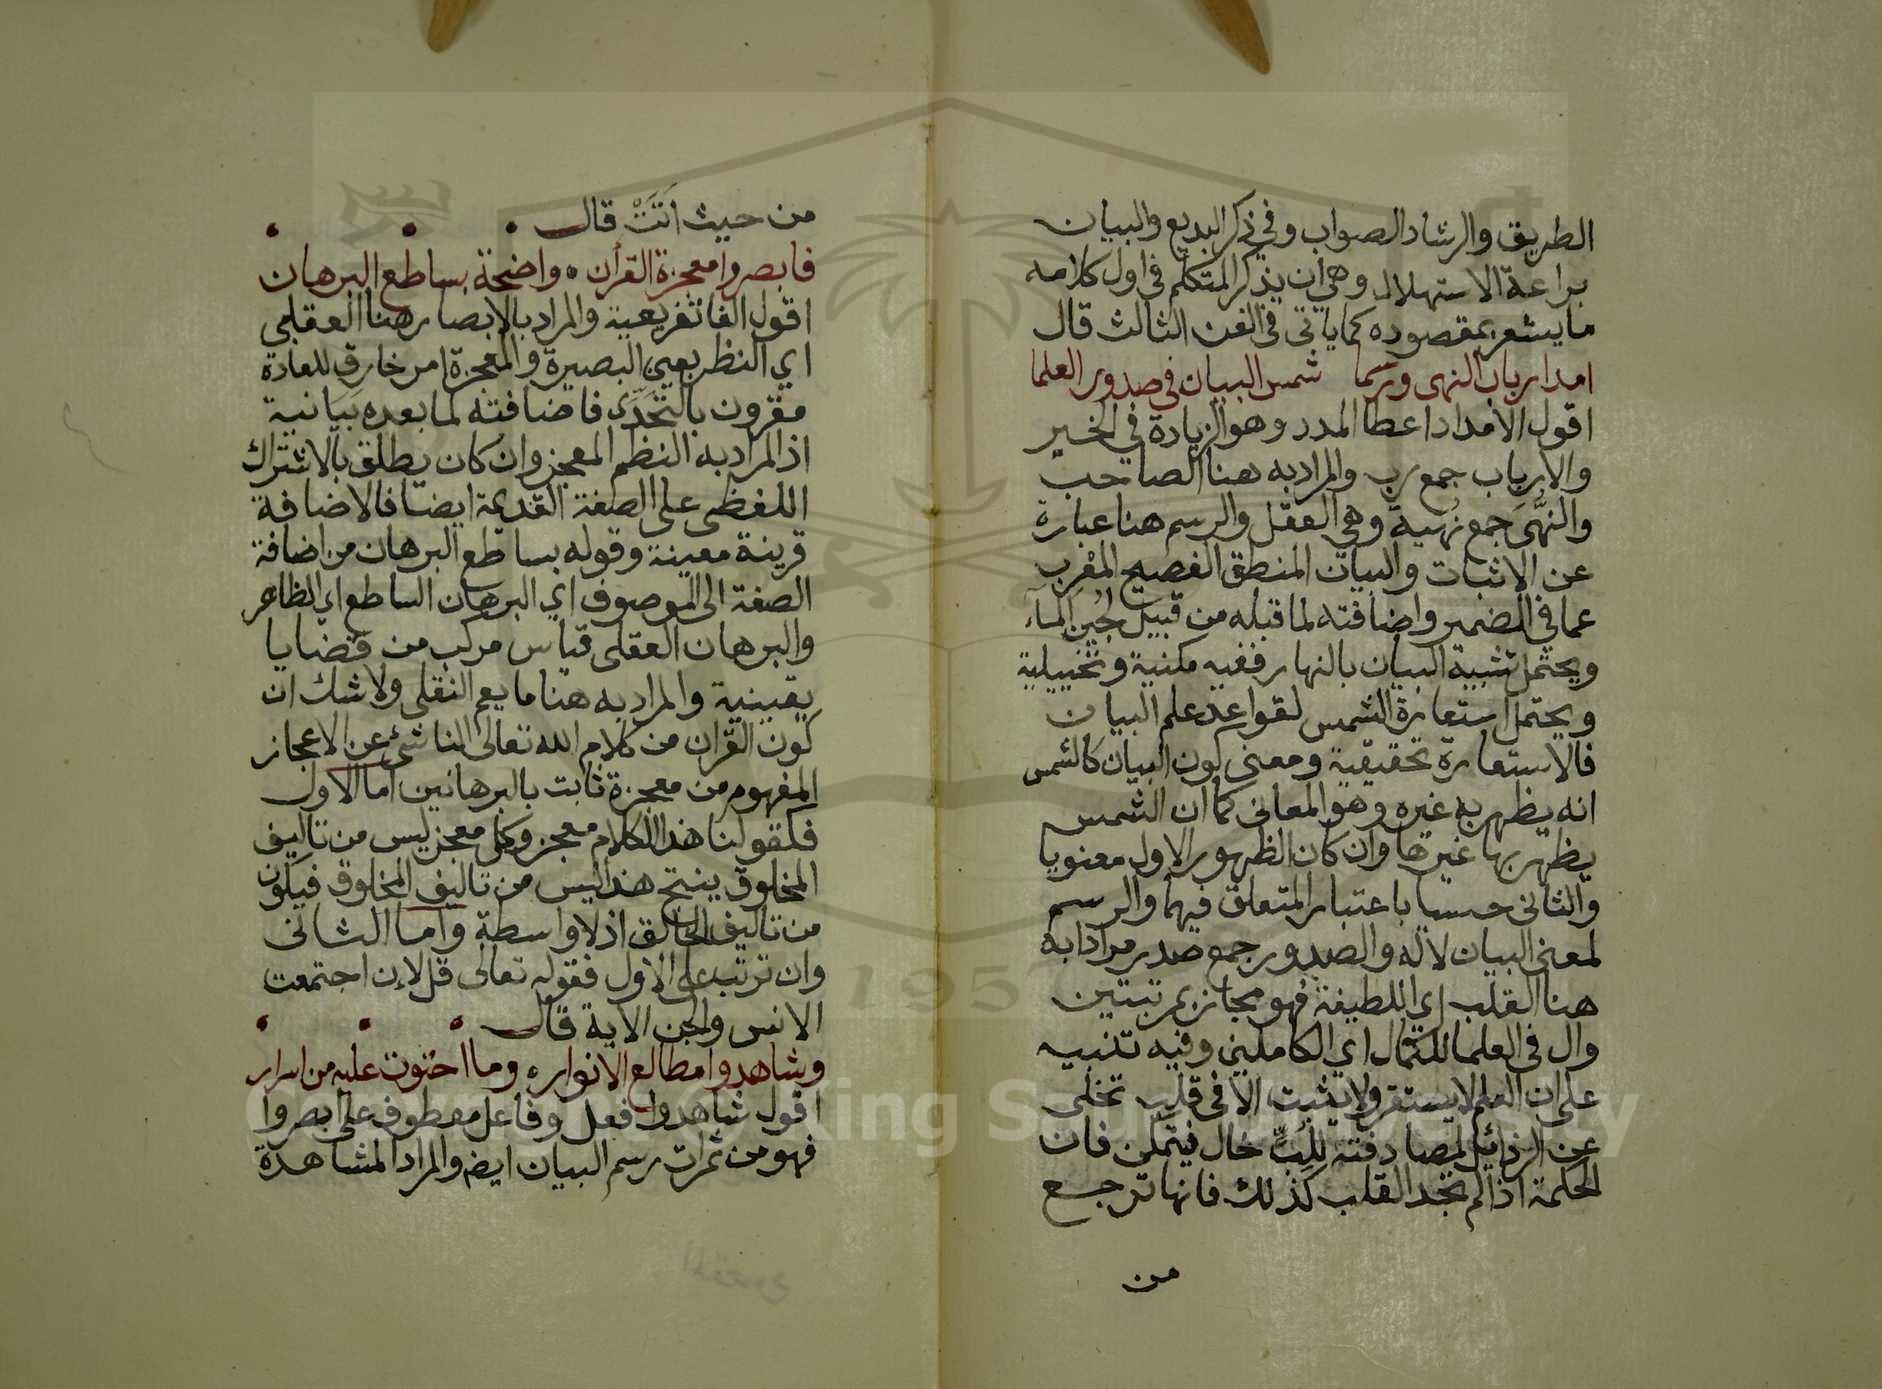 الطريق والرشاد الصواب وفي ذكر البديع والبيان
براعة الاستهلال وهي ان يذكر المتكلم في اول كلامه
ما يشعر بمقصوده كما ياتي في الفن الثالث قال
امد ارباب النهى ورسما شمس البيان في صدور العلما
اقول الامداد اعطا المدد وهو الزيادة في الخير
والارباب جمع رب والمراد به هنا الصاحب
والنُّهَى جمع نُهية وهي العقل والرسم هنا عبارة
عن الاثبات والبيان المنطق الفصيح المُعْرِب
عما في الضمير واضافته لما قبله من قبيل لُجَين المآء
ويحتمل تشبيه البيان بالنهار ففيه مكنية وتخييلية
ويحتمل استعارة الشمس لقواعد علم البيان
فالاستعارة تحقيقية ومعنى كون البيان كالشمس
انه يظهر به غيره وهو المعاني كما ان الشمس
يظهر بها غيرها وان كان الظهور الاول معنويا
والثاني حسيا باعتبار المتعلق فيهما والرسم
لمعنى البيان لا له والصدور جمع صدر مرادا به
هنا القلب اي اللطيفة فهو مجاز بمرتبتين
وال في العلما للكمال اي الكاملين وفيه تنبيه
على ان العلم لا يستقر ولا يثبت الا في قلب تخلى
عن الرذائل لمصادفته لِلُبٍّ خال فيتمكن فان
الحكمة اذا لم تجد القلب كذلك فانها ترجع
من
من حيث اَتَتْ قال
فابصروا معجزة القرآن واضحة بساطع البرهان
اقول الفا تفريعية والمراد بالابصار هنا العقلي
اي النظر بعين البصيرة والمعجزة امر خارق للعادة
مقرون بالتحَدِّى فاضافته لما بعده بَيَانية
اذ المراد به النظم المعجز وان كان يطلق بالاشتراك
اللفظي على الصفة القديمة ايضا فالاضافة
قرينة معينة وقوله بساطع البرهان من اضافة
الصفة الى الموصوف اي البرهان الساطع اي الظاهر
والبرهان العقلي قياس مركب من قضايا
يقينية والمراد به هنا ما يعم النقلي ولا شك ان
كون القران من كلام الله تعالى الناشئ عن الاعجاز
المفهوم من معجزة ثابت بالبرهانين اما الاول
فكقولنا هذا الكلام معجز وكل معجز ليس من تاليف
المخلوق ينتج هذا ليس من تاليف المخلوق فيكون
من تاليف الخالق اذ لا واسطة واما الثاني
وان ترتب على الاول فقوله تعالى قل لان اجتمعت
الانس والجن الاية قال
وشاهدوا مطالع الانوار وما احتوت عليه من اسرار
اقول شاهدوا فعل وفاعل معطوف على ابصروا
فهو من ثمرات رسم البيان ايضا والمراد المشاهدة
Copyright © King Saud University
1957